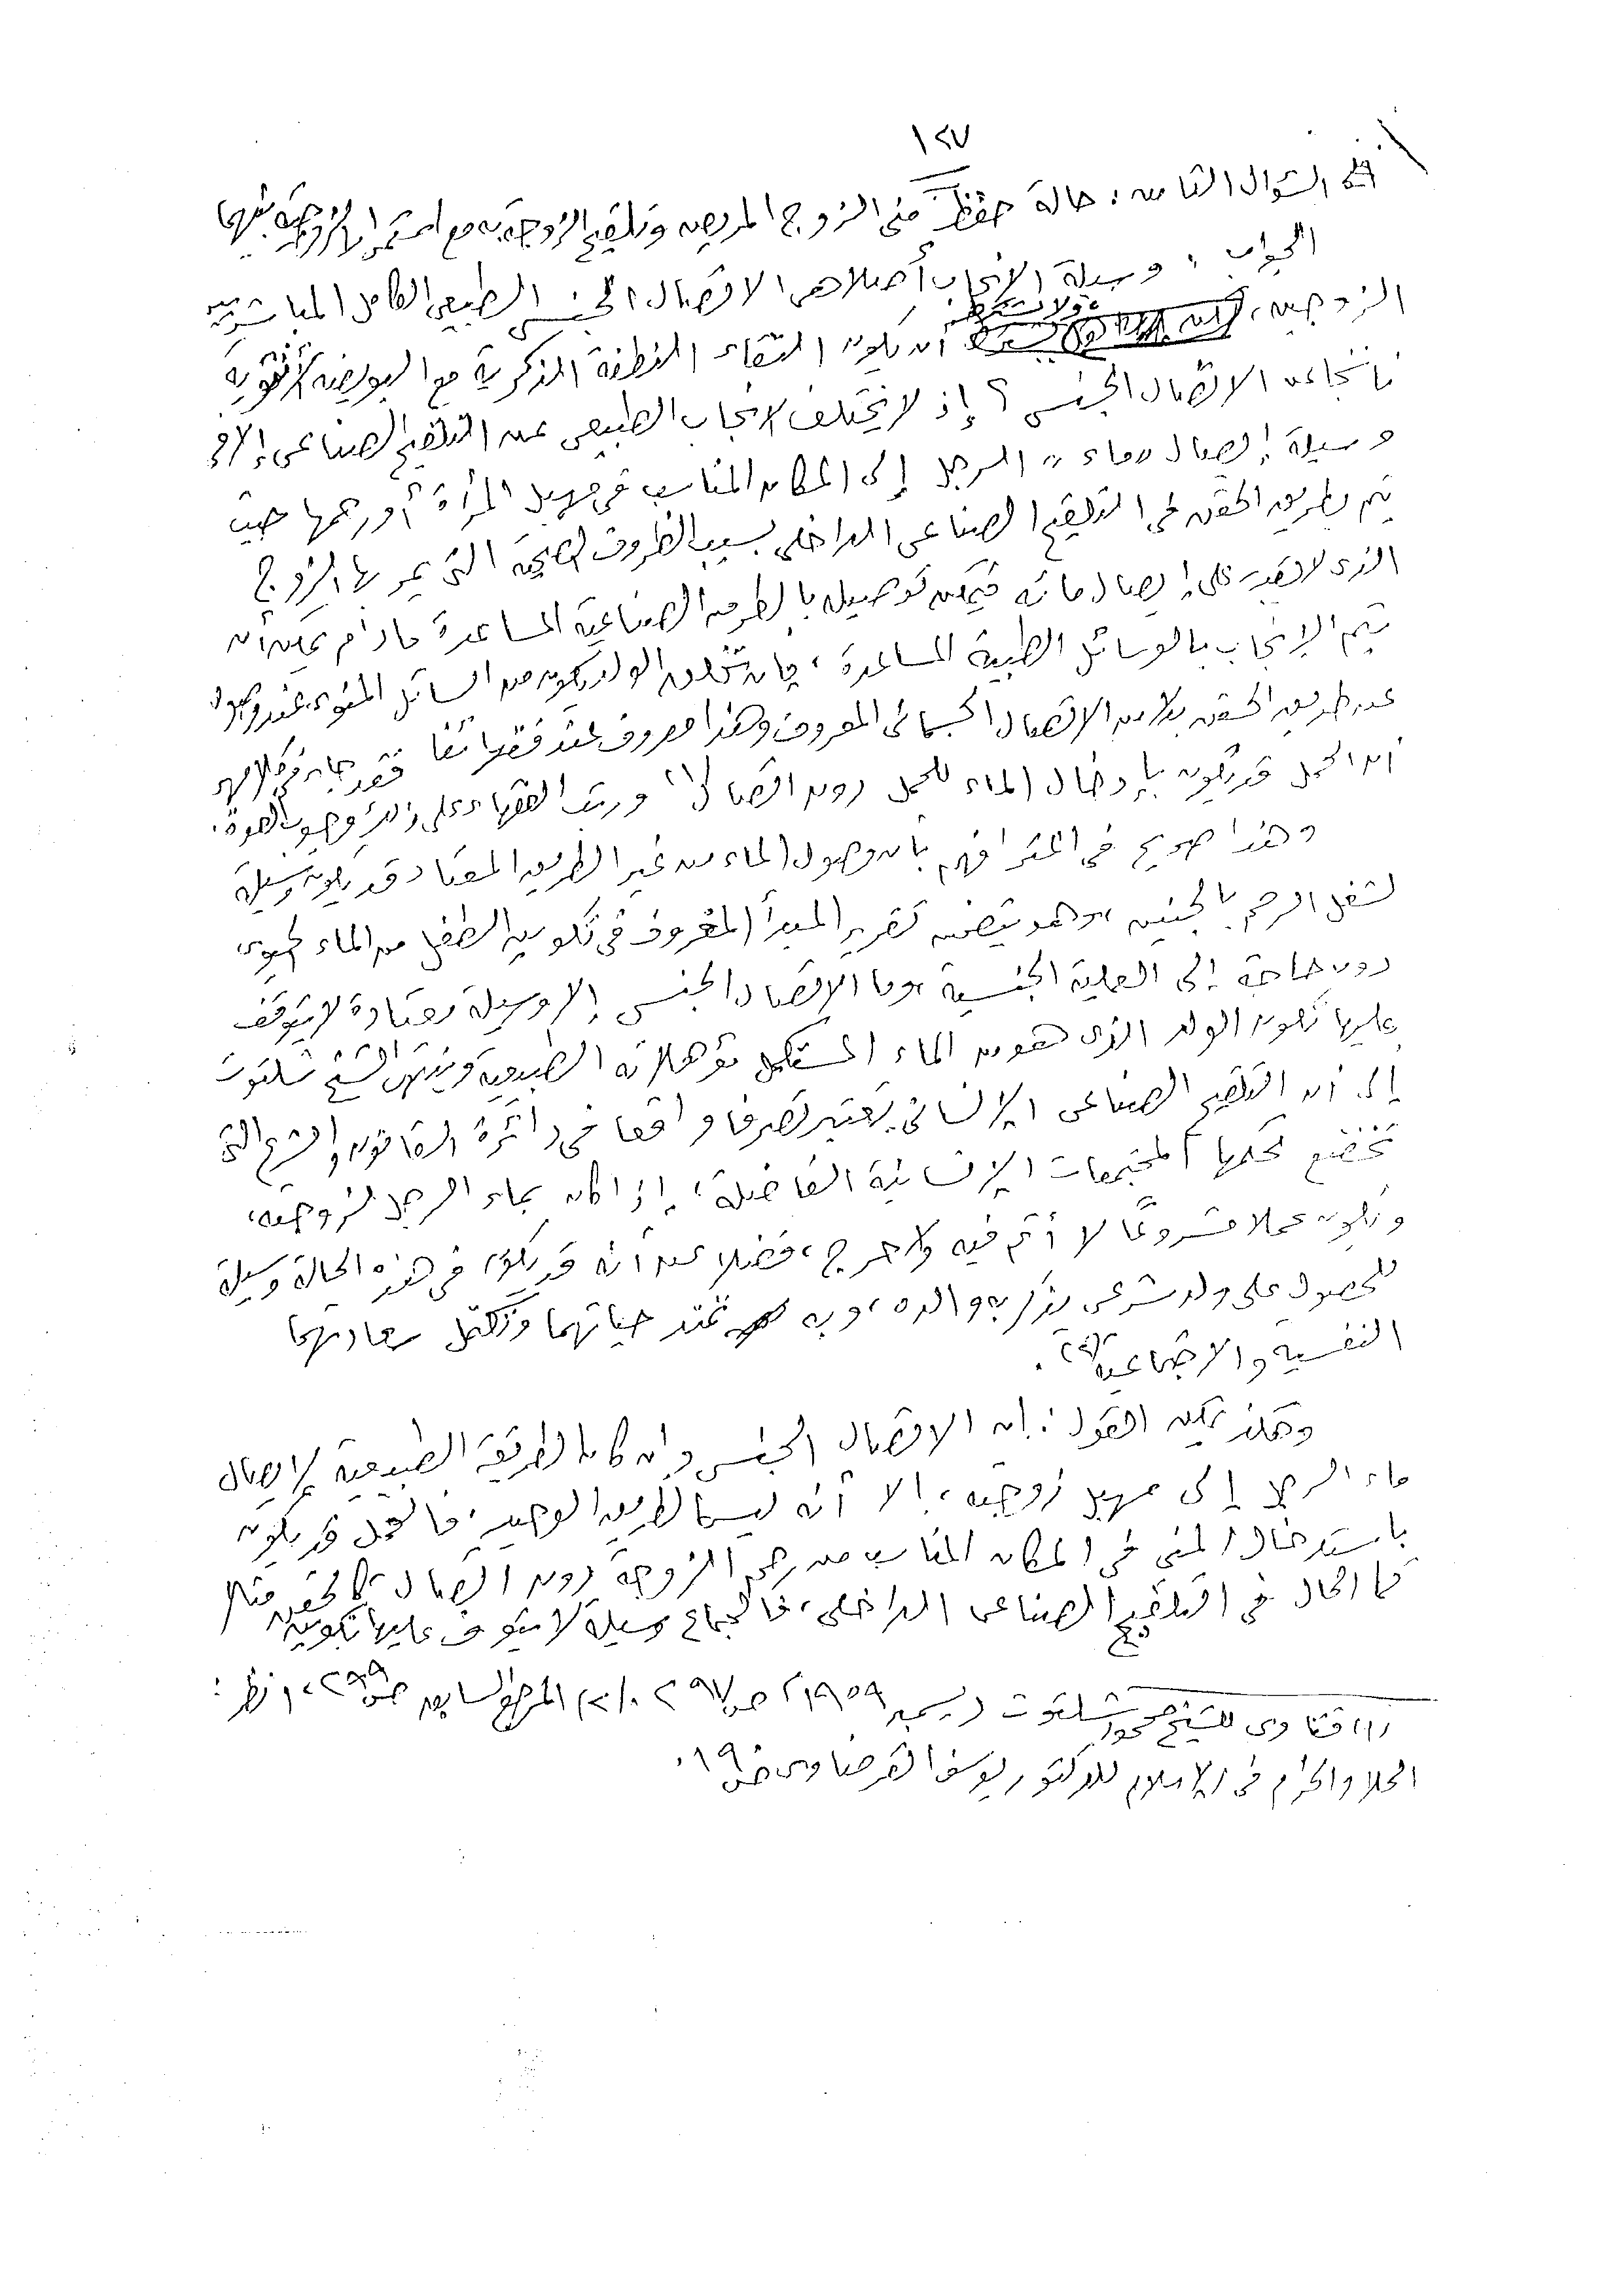 ١٢٧
السؤال الثامن: حالة حفظ منى الزوج المريض وتلقيح الزوجة به مع استمرار الزوجية بينهما
الجواب: وسيلة الإنجاب أصلا هى الاتصال الجنسى الطبيعى الكامل المباشر بين
الزوجين، ولا يشترط أن يكون التقاء النطفة الذكرية مع البويضة الأنثوية
ناتجا عن الاتصال الجنسى؟ إذ لا يختلف الإنجاب الطبيعى عن التلقيح الصناعى إلا فى
وسيلة إيصال "ماء" الرجل إلى المكان المناسب فى مهبل المرأة أو رحمها حيث
يتم بطريق الحقن فى التلقيح الصناعى الداخلى بسبب الظروف الصحية التى يمر بها الزوج
الذى لا يقدر على إيصال مائه فيمكن توصيله بالطرق الصناعية المساعدة ما دام يمكن أن
يتم الإنجاب بالوسائل الطبية المساعدة، فإن تخلق الولد يكون من السائل المنوى عند وصوله
عن طريق الحقن بدلا من الاتصال الجسمانى المعروف وهذا معروف عند فقهائنا فقد جاء فى كلامهم
أن الحمل قد يكون بإدخال الماء للمحل دون اتصال(١) ورتب الفقهاء على ذلك وجوب العدة.
وهذا صريح فى اعترافهم بأن وصول الماء من غير الطريق المعتاد قد يكون وسيلة
لشغل الرحم بالجنين، وهو يتضمن تقرير المبدأ المعروف فى تكوين الطفل من الماء الحيوى
دون حاجة إلى العملية الجنسية، وما الاتصال الجنسى إلا وسيلة معتادة لا يتوقف
عليها تكون الولد الذى هو من الماء المستكمل مؤهلاته الطبيعية وينتهى الشيخ شلتوت
إلى أن التلقيح الصناعى الإنسانى يعتبر تصرفا واقعا فى دائرة القانون والشرع التى
تخضع لحكمها المجتمعات الإنسانية الفاضلة، إذا كان بماء الرجل لزوجته،
ويكون عملا مشروعًا لا أثم فيه ولا حرج، فضلا عن أنه قد يكون فى هذه الحالة وسيلة
للحصول على ولد شرعى يذكر به والده، وبه تمتد حياتهما وتكتمل سعادتهما
النفسية والاجتماعية(٢).
وهكذا يمكن القول: إن الاتصال الجنسى وإن كان الطريقة الطبيعية لإيصال
ماء الرجل إلى مهبل زوجته، إلا أنه ليس الطريق الوحيد، فالحمل قد يكون
باستدخال المنى فى المكان المناسب من رحم الزوجة دون اتصال كالحقن مثلا
كما الحال فى التلقيح الصناعى الداخلى، فالجماع وسيلة لا يتوقف عليها تكوين
(١) فتاوى للشيخ محمود شلتوت ديسمبر ١٩٥٩ ص ٢٩٧. (٢) المرجع السابق ص ٢٩٩، انظر:
الحلال والحرام فى الإسلام للدكتور يوسف القرضاوى ص ١٩.